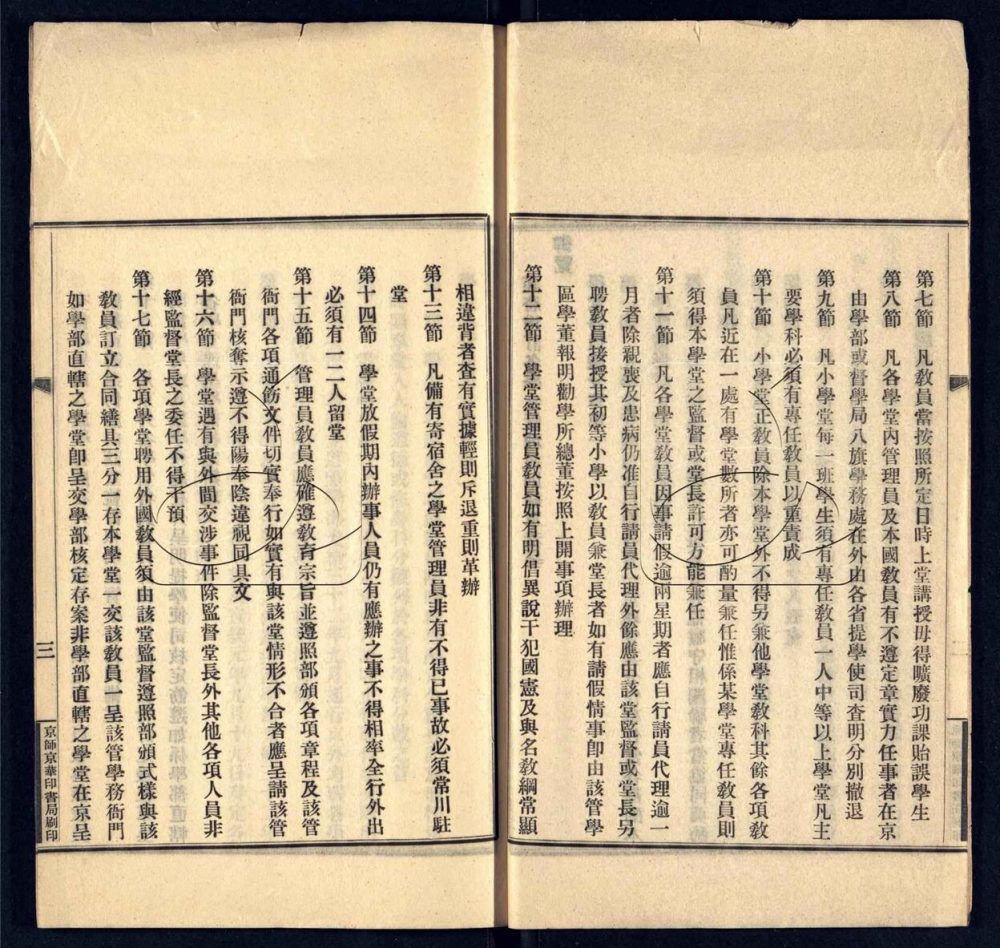 第七節　凡敎員當按照所定日時上堂講授毋得曠廢功課貽誤學生
第八節　凡各學堂內管理員及本國敎員有不遵定章實力任事者在京
由學部或督學局八旗學務處在外由各省提學使司查明分別撤退
第九節　凡小學堂每一班學生須有專任敎員一人中等以上學堂凡主
要學科必須有專任敎員以重責成
第十節　小學堂正敎員除本學堂外不得另兼他學堂敎科其餘各項敎
員凡近在一處有學堂數所者亦可酌量兼任惟係某學堂專任敎員則
須得本學堂之監督或堂長許可方能兼任
第十一節　凡各學堂敎員因事請假逾兩星期者應自行請員代理逾一
月者除親喪及患病仍准自行請員代理外餘應由該堂監督或堂長另
聘敎員接授其初等小學以敎員兼堂長者如有請假情事卽由該管學
區學董報明勸學所總董按照上開事項辦理
第十二節　學堂管理員敎員如有明倡異說干犯國憲及與名敎綱常顯
相違背者查有實據輕則斥退重則革辦
第十三節　凡備有寄宿舍之學堂管理員非有不得已事故必須常川駐
堂
第十四節　學堂放假期內辦事人員仍有應辦之事不得相率全行外出
必須有一二人留堂
第十五節　管理員敎員應確遵敎育宗旨並遵照部頒各項章程及該管
衙門各項通飭文件切實奉行如實有與該堂情形不合者應呈請該管
衙門核奪示遵不得陽奉陰違視同具文
第十六節　學堂遇有與外間交涉事件除監督堂長外其他各項人員非
經監督堂長之委任不得干預
第十七節　各項學堂聘用外國敎員須由該堂監督遵照部頒式樣與該
敎員訂立合同繕具三分一存本學堂一交該敎員一呈該管學務衙門
如學部直轄之學堂卽呈交學部核定存案非學部直轄之學堂在京呈
三
京師京華印書局刷印